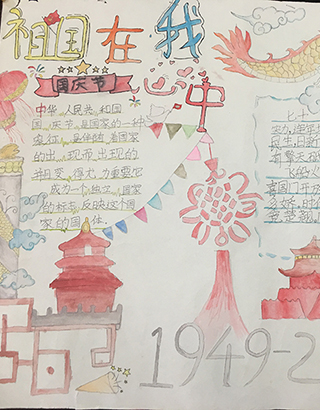 祖国在我
心中
国庆节
中华人民共和国
国庆节是国家的一种
象征,是伴随着国家
的出现而出现的
并且变得尤为重要它
成为一个独立国家
的标志,反映这个国
家的国体
七十
农力,连年
民生,日新
有擎天
飞的火
喜国门开放
多娇,时
我楚翘
1949-2